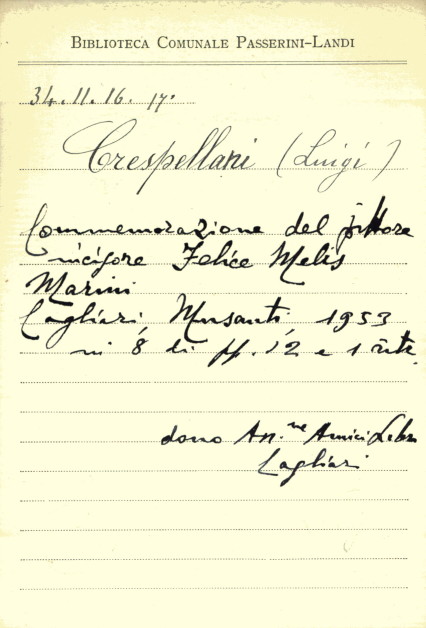 BIBLIOTECA COMUNALE PASSERINI-LANDI
34.11.16.17.
Crespellani (Luigi)
Commemorazione del pittore
incisore Felice Melis
Marini
Cagliari Musanti 1953
in 8 di pp. 12 e 1 rit.
dono An.ne Amici Libro
Cagliari